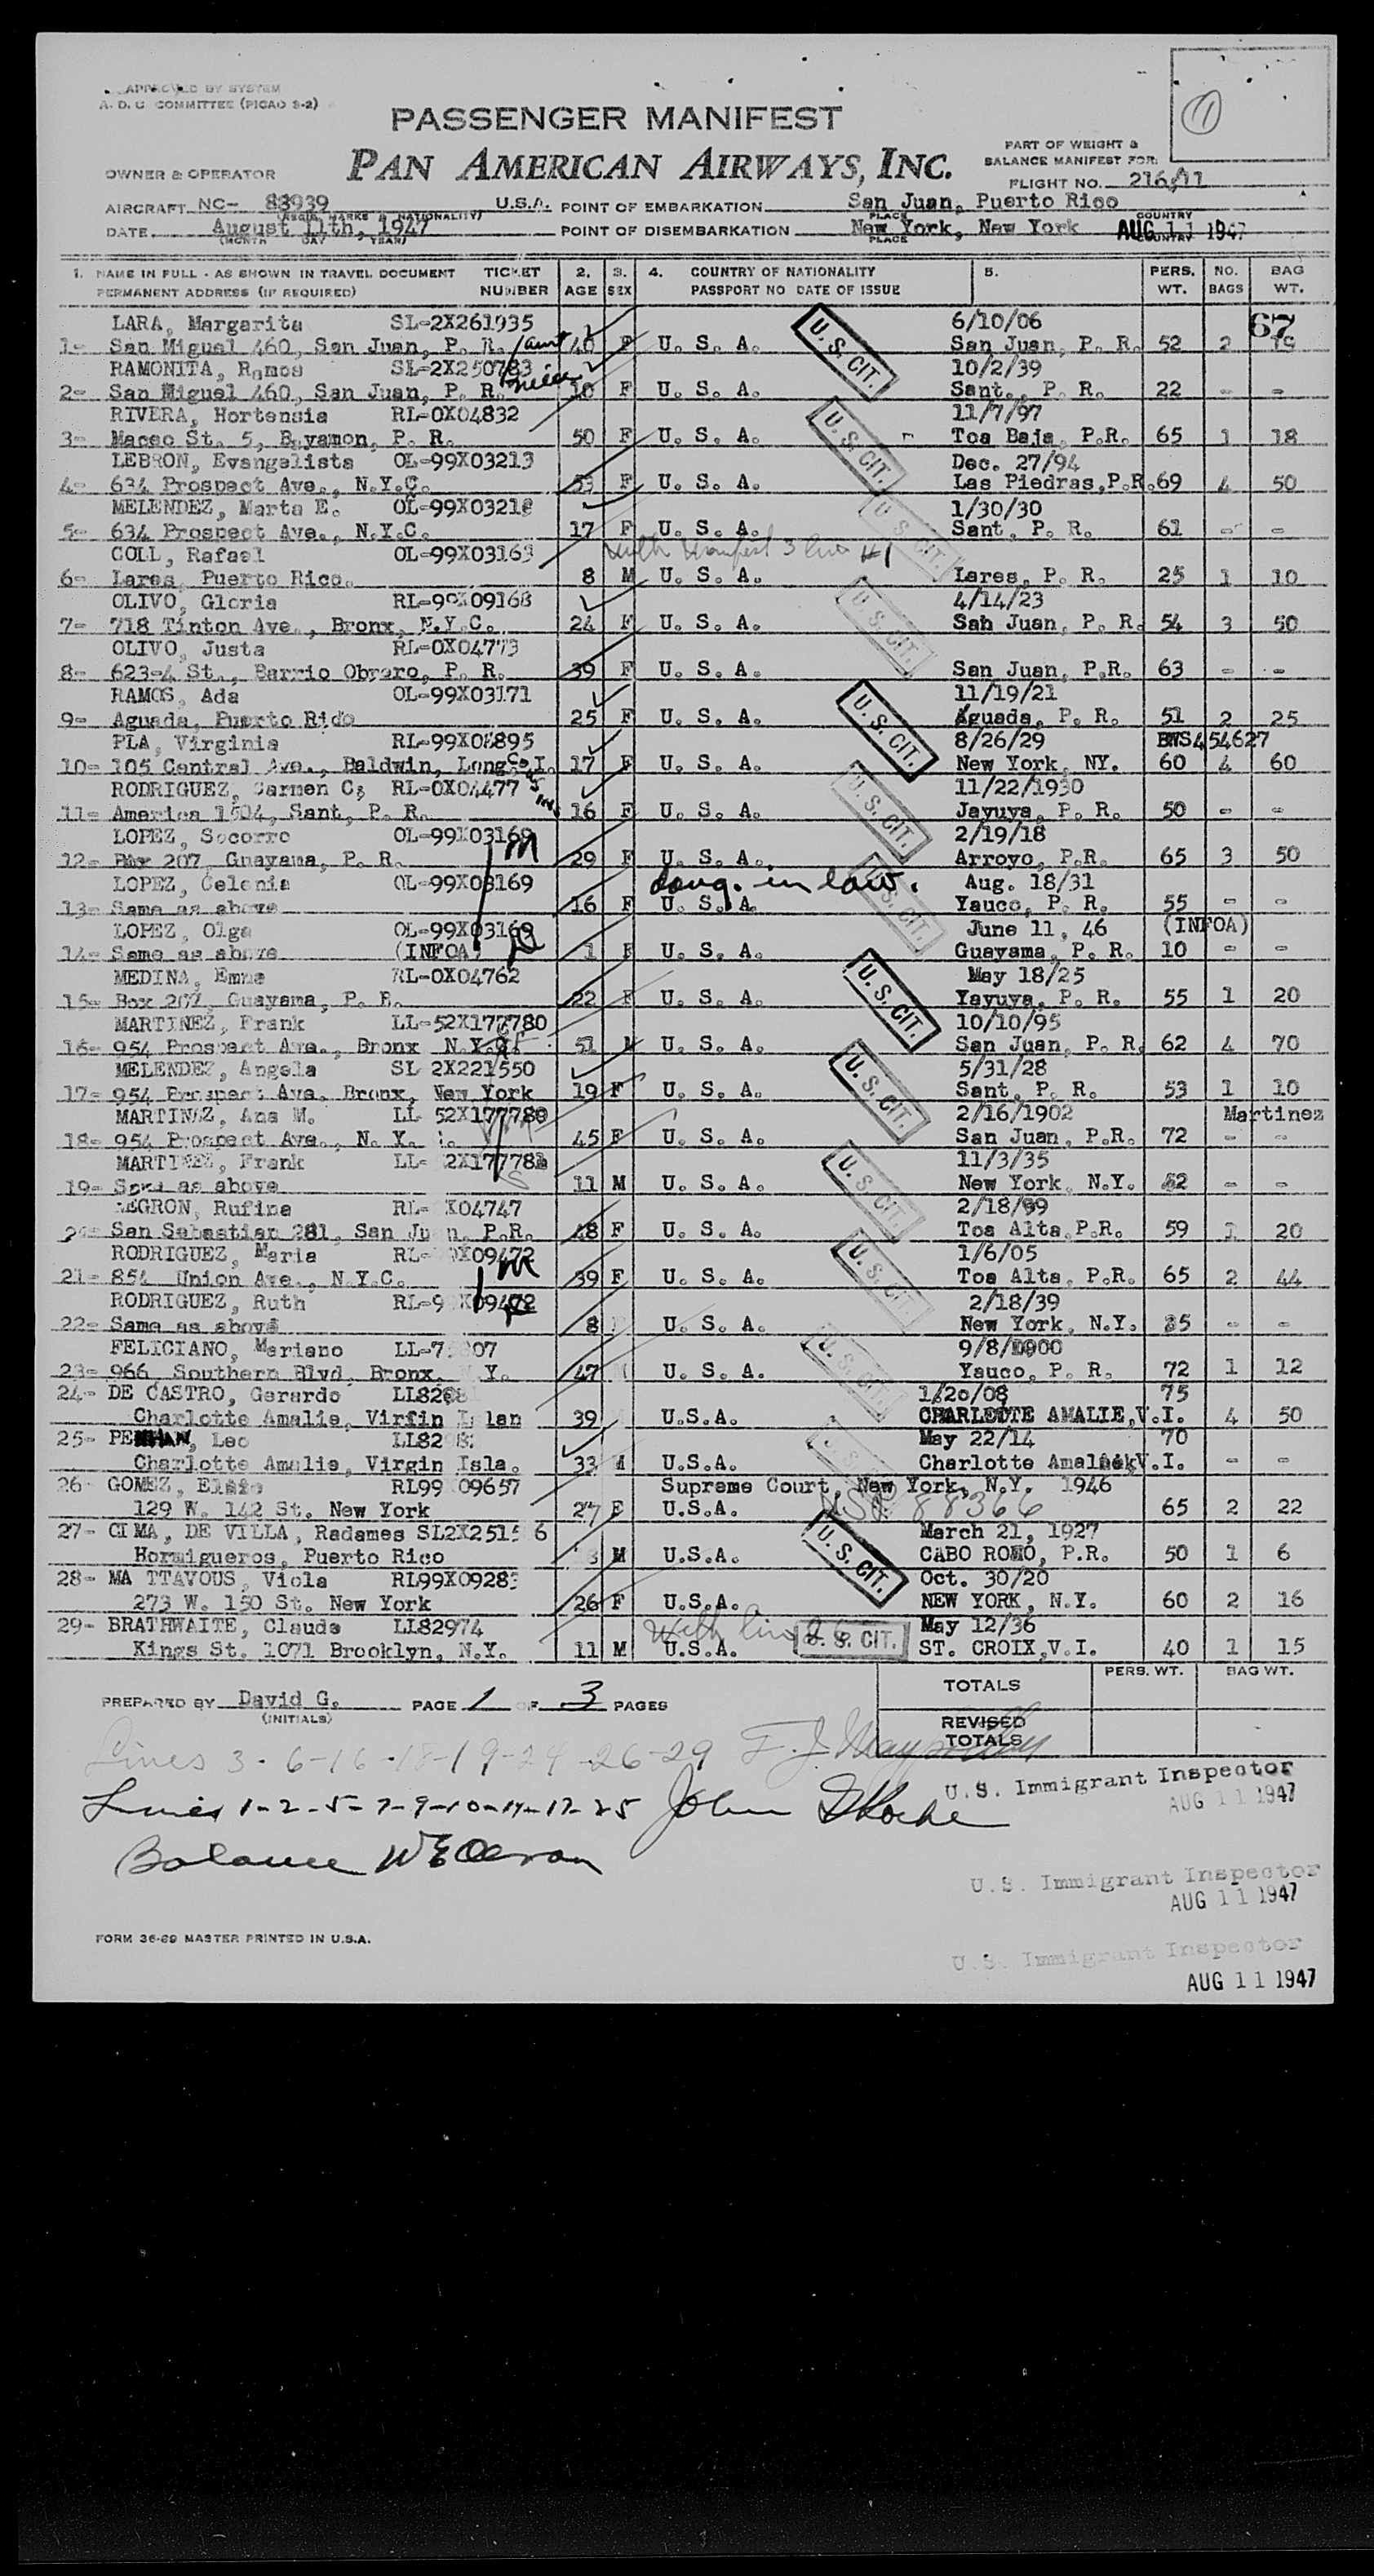 APPROVED BY SYSTEM
A. D. C COMMITTEE (PICAO S-2)
PASSENGER MANIFEST
PAN AMERICAN AIRWAYS, INC.
PART OF WEIGHT &
BALANCE MANIFEST FOR:
OWNER & OPERATOR
FLIGHT NO. 216/11
AIRCRAFT NC- 88939 U.S.A. POINT OF EMBARKATION San Juan, Puerto Rico
(REGIS. MARKS & NATIONALITY) PLACE COUNTRY
DATE August 11th, 1947 POINT OF DISEMBARKATION New York, New York AUG 11 1947
(MONTH DAY YEAR) PLACE COUNTRY
1. NAME IN FULL - AS SHOWN IN TRAVEL DOCUMENT TICKET 2. 3. 4. COUNTRY OF NATIONALITY 5. PERS. NO. BAG
PERMANENT ADDRESS (IF REQUIRED) NUMBER AGE SEX PASSPORT NO DATE OF ISSUE WT. BAGS WT.
LARA, Margarita SL-2X261935 6/10/06 67
1- San Miguel 460, San Juan, P. R. aunt 40 F U. S. A. U. S. CIT. San Juan, P. R. 52 2 19
RAMONITA, Ramos SL-2X250783 10/2/39
2- San Miguel 460, San Juan, P. R. niece 10 F U. S. A. Sant., P. R. 22 - -
RIVERA, Hortensia RL-0X04832 11/7/97
3- Macao St. 5, Bayamon, P. R. 50 F U. S. A. U. S. CIT. Toa Baja, P.R. 65 1 18
LEBRON, Evangelista OL-99X03213 Dec. 27/94
4- 634 Prospect Ave., N.Y.C. 53 F U. S. A. Las Piedras,P.R. 69 4 50
MELENDEZ, Marta E. OL-99X03218 1/30/30
5- 634 Prospect Ave., N.Y.C. 17 F U. S. A. U. S. CIT. Sant, P. R. 61 - -
COLL, Rafael OL-99X03163 with manifest 3 line #1
6- Lares, Puerto Rico. 8 M U. S. A. Lares, P. R. 25 1 10
OLIVO, Gloria RL-99X09168 4/14/23
7- 718 Tinton Ave., Bronx, N.Y.C. 24 F U. S. A. U. S. CIT. San Juan, P. R. 54 3 50
OLIVO, Justa RL-0X04773
8- 623-4 St., Barrio Obrero, P. R. 39 F U. S. A. San Juan, P.R. 63 - -
RAMOS, Ada OL-99X03171 11/19/21
9- Aguada, Puerto Rico 25 F U. S. A. U. S. CIT. Aguada, P. R. 51 2 25
PLA, Virginia RL-99X08895 8/26/29 BWS454627
10- 105 Central Ave., Baldwin, Long I. 17 F U. S. A. New York, NY. 60 4 60
RODRIGUEZ, Carmen C; RL-0X04477 11/22/1930
11- America 1504, Sant, P. R. 16 F U. S. A. U. S. CIT. Jayuya, P. R. 50 - -
LOPEZ, Socorro OL-99X03169 M 2/19/18
12- Box 207, Guayama, P. R. 29 F U. S. A. Arroyo, P.R. 65 3 50
LOPEZ, Celenia OL-99X03169 daug. in law. Aug. 18/31
13- Same as above 16 F U. S. A. U. S. CIT. Yauco, P. R. 55 - -
LOPEZ, Olga OL-99X03169 June 11, 46 (INFOA)
14- Same as above (INFOA) D 1 F U. S. A. Guayama, P. R. 10 - -
MEDINA, Emma RL-0X04762 May 18/25
15- Box 207, Guayama, P. R. 22 F U. S. A. U. S. CIT. Yayuya, P. R. 55 1 20
MARTINEZ, Frank LL-52X177780 10/10/95
16- 954 Prospect Ave., Bronx N.Y.C. 51 M U. S. A. San Juan, P. R. 62 4 70
MELENDEZ, Angela SL 2X221550 5/31/28
17- 954 Prospect Ave. Bronx, New York 19 F U. S. A. U. S. CIT. Sant, P. R. 53 1 10
MARTINEZ, Ana M. LL 52X177780 2/16/1902 Martinez
18- 954 Prospect Ave., N. Y. 45 F U. S. A. San Juan, P.R. 72 - -
MARTINEZ, Frank LL- 2X17778 11/3/35
19- Same as above 11 M U. S. A. U. S. CIT. New York, N.Y. - -
NEGRON, Rufina RL- X04747 2/18/99
20- San Sebastian 281, San Juan, P.R. 48 F U. S. A. Toa Alta,P.R. 59 1 20
RODRIGUEZ, Maria RL- 0X09472 1/6/05
21- 854 Union Ave., N.Y.C. 39 F U. S. A. U. S. CIT. Toa Alta, P.R. 65 2 44
RODRIGUEZ, Ruth RL-9 X09472 2/18/39
22- Same as above 8 U. S. A. New York, N.Y. 35 - -
FELICIANO, Mariano LL-7 07 9/8/1900
23- 966 Southern Blvd, Bronx, N.Y. 47 U. S. A. U. S. CIT. Yauco, P. R. 72 1 12
24- DE CASTRO, Gerardo LL8298 1/20/08 75
Charlotte Amalie, Virfin Islan 39 U.S.A. CHARLOTTE AMALIE,V.I. 4 50
25- PENHAN, Leo LL82 May 22/14 70
Charlotte Amalie, Virgin Isla. 33 M U.S.A. U. S. CIT. Charlotte Amalie V.I. - -
26- GOMEZ, RL99 09657 Supreme Court, New York, N.Y. 1946
129 W. 142 St. New York 27 F U.S.A. 88366 65 2 22
27- CIMA, DE VILLA, Radames SL2X2515 6 March 21, 1927
Hormigueros, Puerto Rico M U.S.A. U. S. CIT. CABO ROJO, P.R. 50 1 6
28- MATTAVOUS, Viola RL99X0928 Oct. 30/20
273 W. 150 St. New York 26 F U.S.A. NEW YORK, N.Y. 60 2 16
29- BRATHWAITE, Claude LL82974 With line May 12/36
Kings St. 1071 Brooklyn, N.Y. 11 M U.S.A. U. S. CIT. ST. CROIX,V.I. 40 1 15
TOTALS PERS. WT. BAG WT.
PREPARED BY David G. PAGE 1 OF 3 PAGES
(INITIALS)
REVISED
TOTALS
Lines 3-6-16-18-19-24-26-29
U.S. Immigrant Inspector
AUG 11 1947
Lines 1-2-5-7-9-10-11-17-25 John
Balance
U.S. Immigrant Inspector
AUG 11 1947
FORM 36-69 MASTER PRINTED IN U.S.A.
U.S. Immigrant Inspector
AUG 11 1947